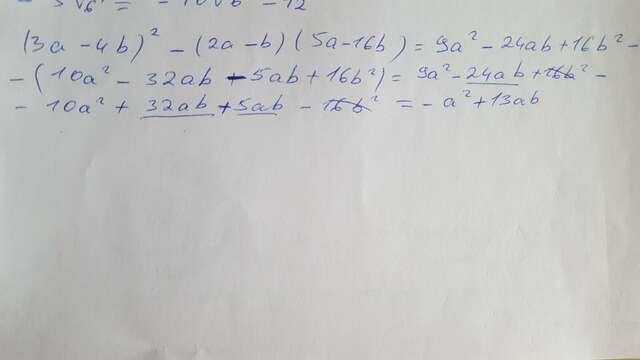 (3a - 4b)² - (2a - b)(5a - 16b) = 9a² - 24ab + 16b² -
- (10a² - 32ab - 5ab + 16b²) = 9a² - 24ab + 16b² -
- 10a² + 32ab + 5ab - 16b² = - a² + 13ab